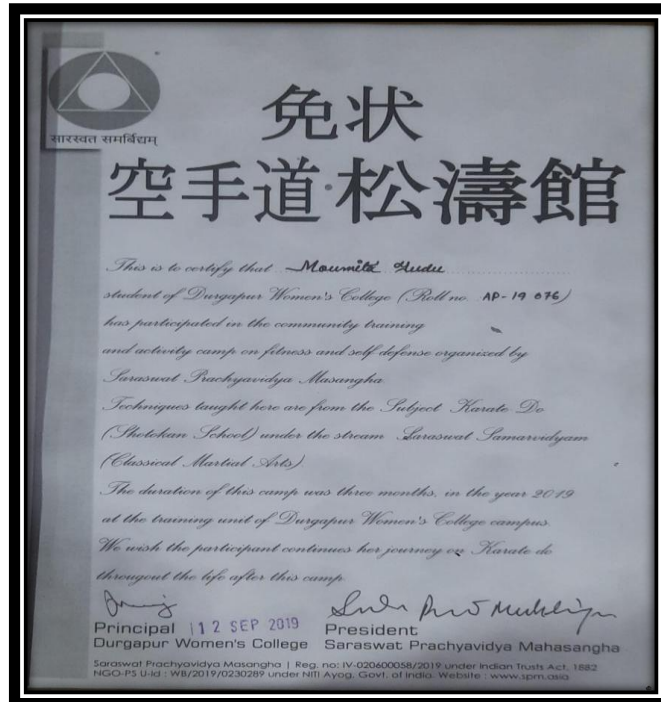 सारस्वत समर्बिद्यम्
免状
空手道・松濤館
This is to certify that Moumita
student of Durgapur Women's College (Roll no. AP-19 076)
has participated in the community training
and activity camp on fitness and self defense organized by
Saraswat Prachyavidya Masangha
Techniques taught here are from the Subject Karate Do
(Shotokan School) under the stream Saraswat Samarvidyam
(Classical Martial Arts)
The duration of this camp was three months, in the year 2019
at the training unit of Durgapur Women's College campus.
We wish the participant continues her journey on Karate do
througout the life after this camp.
Principal 12 SEP 2019 President
Durgapur Women's College Saraswat Prachyavidya Mahasangha
Saraswat Prachyavidya Masangha | Reg. no: IV-020600058/2019 under Indian Trusts Act, 1882
NGO-PS U-Id : WB/2019/0230289 under NITI Ayog, Govt. of India. Website : www.spm.asia